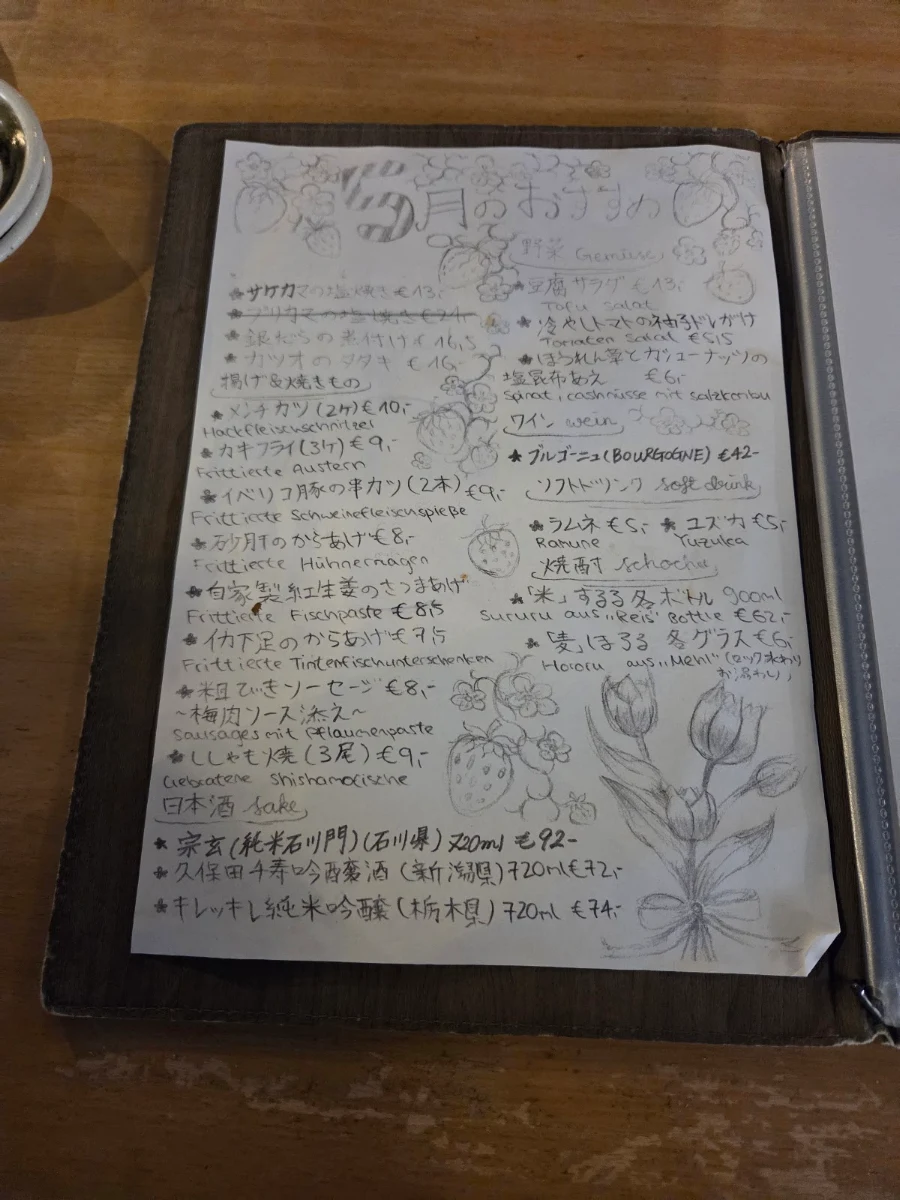 5月のおすすめ
★サケカマの塩焼き €13,-
★ブリカマの塩焼き €21-
★銀だらの煮付け €16,5
★カツオのタタキ €16-
揚げ&焼きもの
★メンチカツ(2ケ) €10,-
Hackfleischschnitzel
★カキフライ(3ケ) €9,-
Frittierte Austern
★イベリコ豚の串カツ(2本) €9,-
Frittierte Schweinefleischspieße
★砂肝のからあげ €8,-
Frittierte Hühnermägen
★自家製紅生姜のさつまあげ
Frittierte Fischpaste €8,5
★イカ下足のからあげ €7,5
Frittierte Tintenfischunterschenken
★粗びきソーセージ €8,-
~梅肉ソース添え~
Sausages mit Pflaumenpaste
★ししゃも焼(3尾) €9,-
Gebratene Shishamofische
日本酒 Sake
★宗玄(純米石川門)(石川県) 720ml €92-
★久保田千寿吟醸酒(新潟県) 720ml €72,-
★キレッキレ純米吟醸(栃木県) 720ml €74,-
野菜 Gemüse
★豆腐サラダ €13,-
Tofu Salat
★冷やしトマトの柚子ドレがけ
Tomaten Salat €5,5
★ほうれん草とカシューナッツの
塩昆布あえ €6,-
Spinat, cashnüsse mit salzkonbu
ワイン wein
★ブルゴーニュ(BOURGOGNE) €42-
ソフトドリンク Soft drink
★ラムネ €5,- ★ユズカ €5,-
Ramune Yuzuka
焼酎 Schochu
★「米」するる 各ボトル 900ml
Sururu aus „Reis" Bottle €62,-
★「麦」ほろる 各グラス €6,-
Hororu aus „Mehl" (ロック水わり
お湯わり)